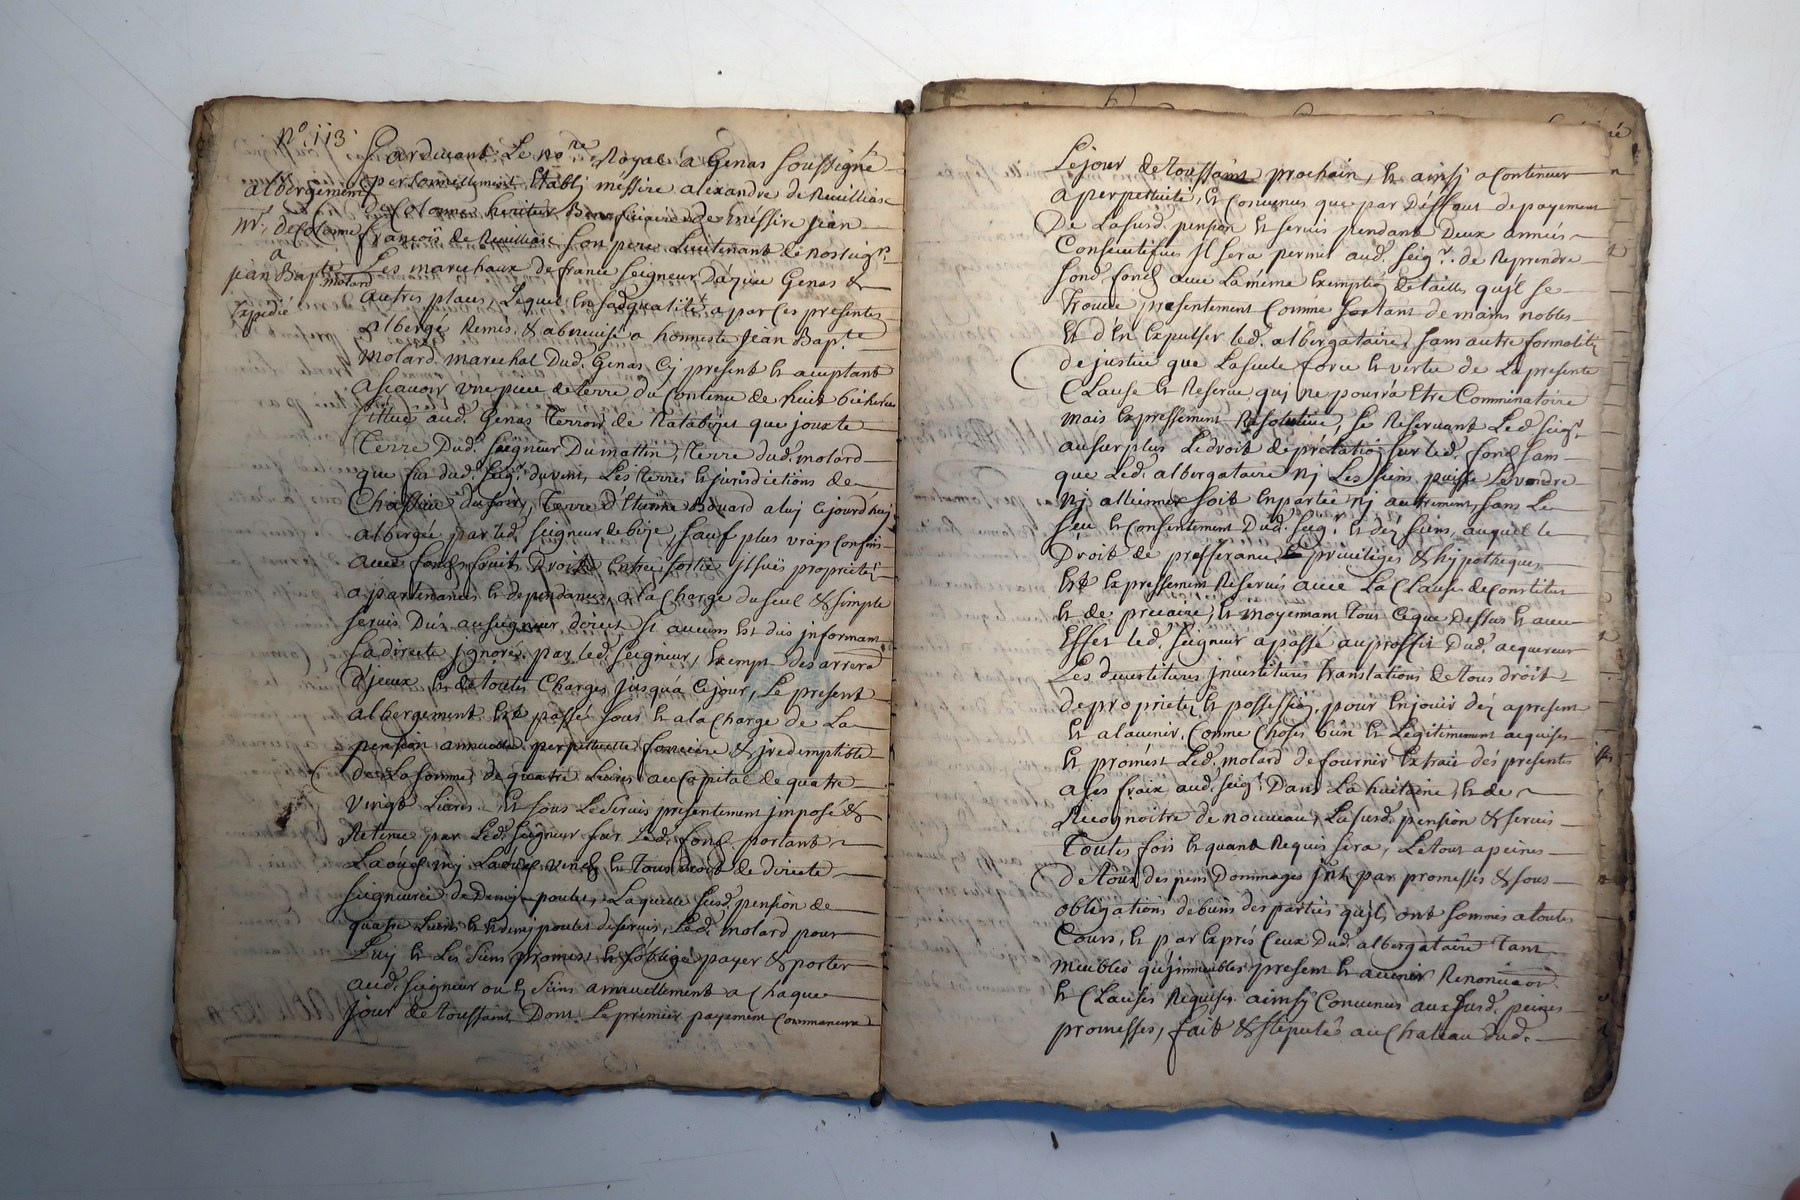 N.º 113
albergement
Mr. de Colonne
a
Jean Bapte
molard
Expedié
Pardevant Le nore Royal a Genas soussigné
personnellement Etably méssire alexandre de
de Colonne heritier Beneficiaire de méssire Jean
françois de son pere Lieutenant de nosseigrs
Les marechaux de france Seigneur D'azieu Genas &
autres places, Lequel En sadqualité a par ces presentes
alberge Remis & abenevisé a honneste Jean Bapte
molard marechal Dud. Genas Cy present Et aceptant
asçavoir une piece de terre du Contenu de huit bicherées
sittuée aud. Genas Terroir de que jouxte
Terre Dud. seigneur Du mattin, Terre dud. molard
que fut dud. seigr. du vent, Les terres Et jurisdictions de
Chassieu du soir, Terre d'Etienne Bouard a luy cejourd'huy
albergé par led. seigneur de bize, sauf plus vrays Confins
avec fonds fruits Droits Entrée sortie jssuës proprietés
apartenances Et dependances, a la Charge du seul & simple
servis Dus au seigneur direct si aucuns Est dus informant
sa directe jgnorée par led. seigneur, Exempt des arrera
d'jceux Et de toutes Charges jusqu'a Cejour, Le present
albergement Est passé sous Et a la Charge de La
pension annuelle perpettuelle fonciere & jrredemptible
de La somme de quatre Livres au Capital de quatre
vingt Livres. Et sous Le servis presentement jmposé &
Retenu par Led. seigneur sur Led. fond portant
Laods my Laods vends Et tous droit de directe
seigneurie de Demy poulet, Laquelle susd. pension de
quatre Livres Et demy poulet de servis, Led. molard pour
Luy Et Les siens promest Et s'oblige payer & porter
aud. seigneur ou Es siens annuellement a chaque
jour de toussaint Dont Le premier payement Commancera
Le jour de toussaint prochain, Et ainsy a Continuer
a perpettuité, Et Convenus que par Déffaut de payement
De La susd. pension Et servis pendant Deux années
Conséutifves jl sera permis aud. Seigr. de Reprendre
sond. fond avec La méme Exemption de tailles qu'jl se
trouve presentement Comme sortant de mains nobles
Et d'En Expulser led. albergataire sans autre formalité
de justice que La seule force Et vertu de La presente
Clause Et Reserve quy ne pourra Etre Comminatoire
mais Expressement Resolutive, se Reservant Led. seigr.
au surplus Le droit de prélation sur led. fond sans
que Led. albergataire ny Les siens puisse Le vendre
ny alliener soit En partie ny autrement, sans Le
sceu Et Consentement Dud. seigr. Et des siens, auquel le
Droit de presferance & privileges & hypotheques
Est Expressement Reservés avec La Clause de Constitut
Et de precaire, Et moyennant Tout Ceque Dessus Et avec
Effet led. seigneur a passé au proffit Dud. acquereur
Les devestitures jnvestitures translations de tous droit
de proprietés Et possession, pour En jouir dés apresent
Et a lavenir. Comme Choses bien Et Legitimement acquises
Et promést Led. molard de fournir Extrait dés presentes
a ses fraix aud. seigr. Dans La huitaine, Et de
Recognoitre de nouveau, La susd. pension & servis
Toutes fois Et quant Requis sera, Le tout a peines
de Tous despens Dommages jnts. par promesses & sous
obligations de biens des parties qu'jls ont sommis a toutes
Cours, Et par Exprés Ceux Dud. albergataire tant
meubles qu'jmmeubles present Et avenir Renonciaon
Et Clauses Requises ainsy Convenus aux susd. peines
promesses, fait & stipulés au Chateau dud.